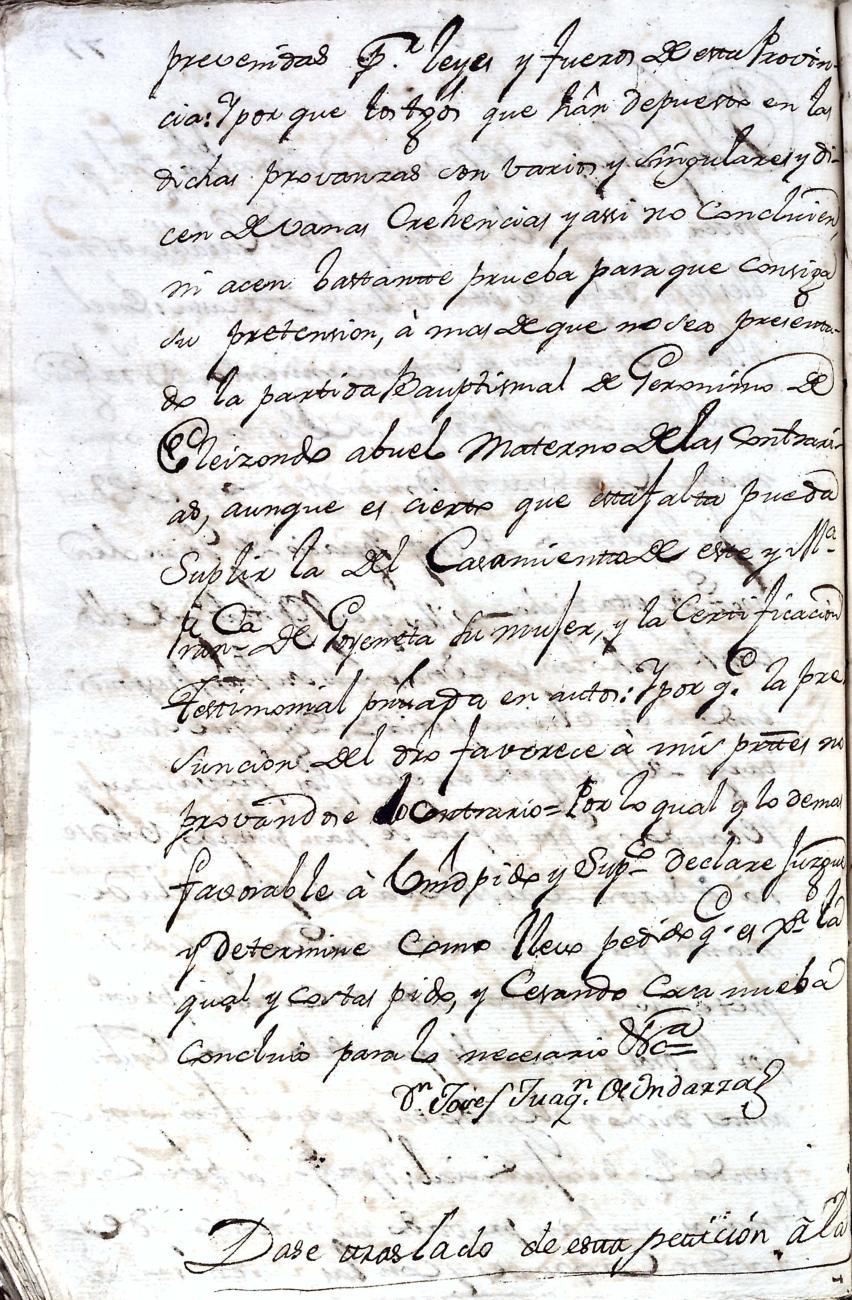 prevenidas p.r leyes y fueros de esta Provin-
cia: Y por que los tgôs que hân depuesto en las
dichas provanzas son varios y singulares y di-
cen de vanas Crehencias y assi no Concluien,
ni acen bastante prueba para que Consiga
su pretension, à mas de que no sea presenta-
do la partida Bauptismal de Geronimo de
Eleizondo abuelo Materno de las Contrari-
as, aunque es cierto que esta falta pueda
Suplir la del Casamiento de este y M.a
Fran.ca de Goyeneta su mujer, y la Certificacion
Testimonial en autos: Y por q.e la pre
suncion del dro favorece à mis prâtes no
provandose lo Contrario = Por lo qual y lo demas
favorable à Vmd pido y Sup.co declare Juzgue
y Determine Como llevo pedido q.e es xa la
qual y costas pido, y Cesando Cosa nueba
Concluio para lo necesario &c.a =
D.n Josef Juaq.n de Indarza
Dase traslado de esta peticiòn à la